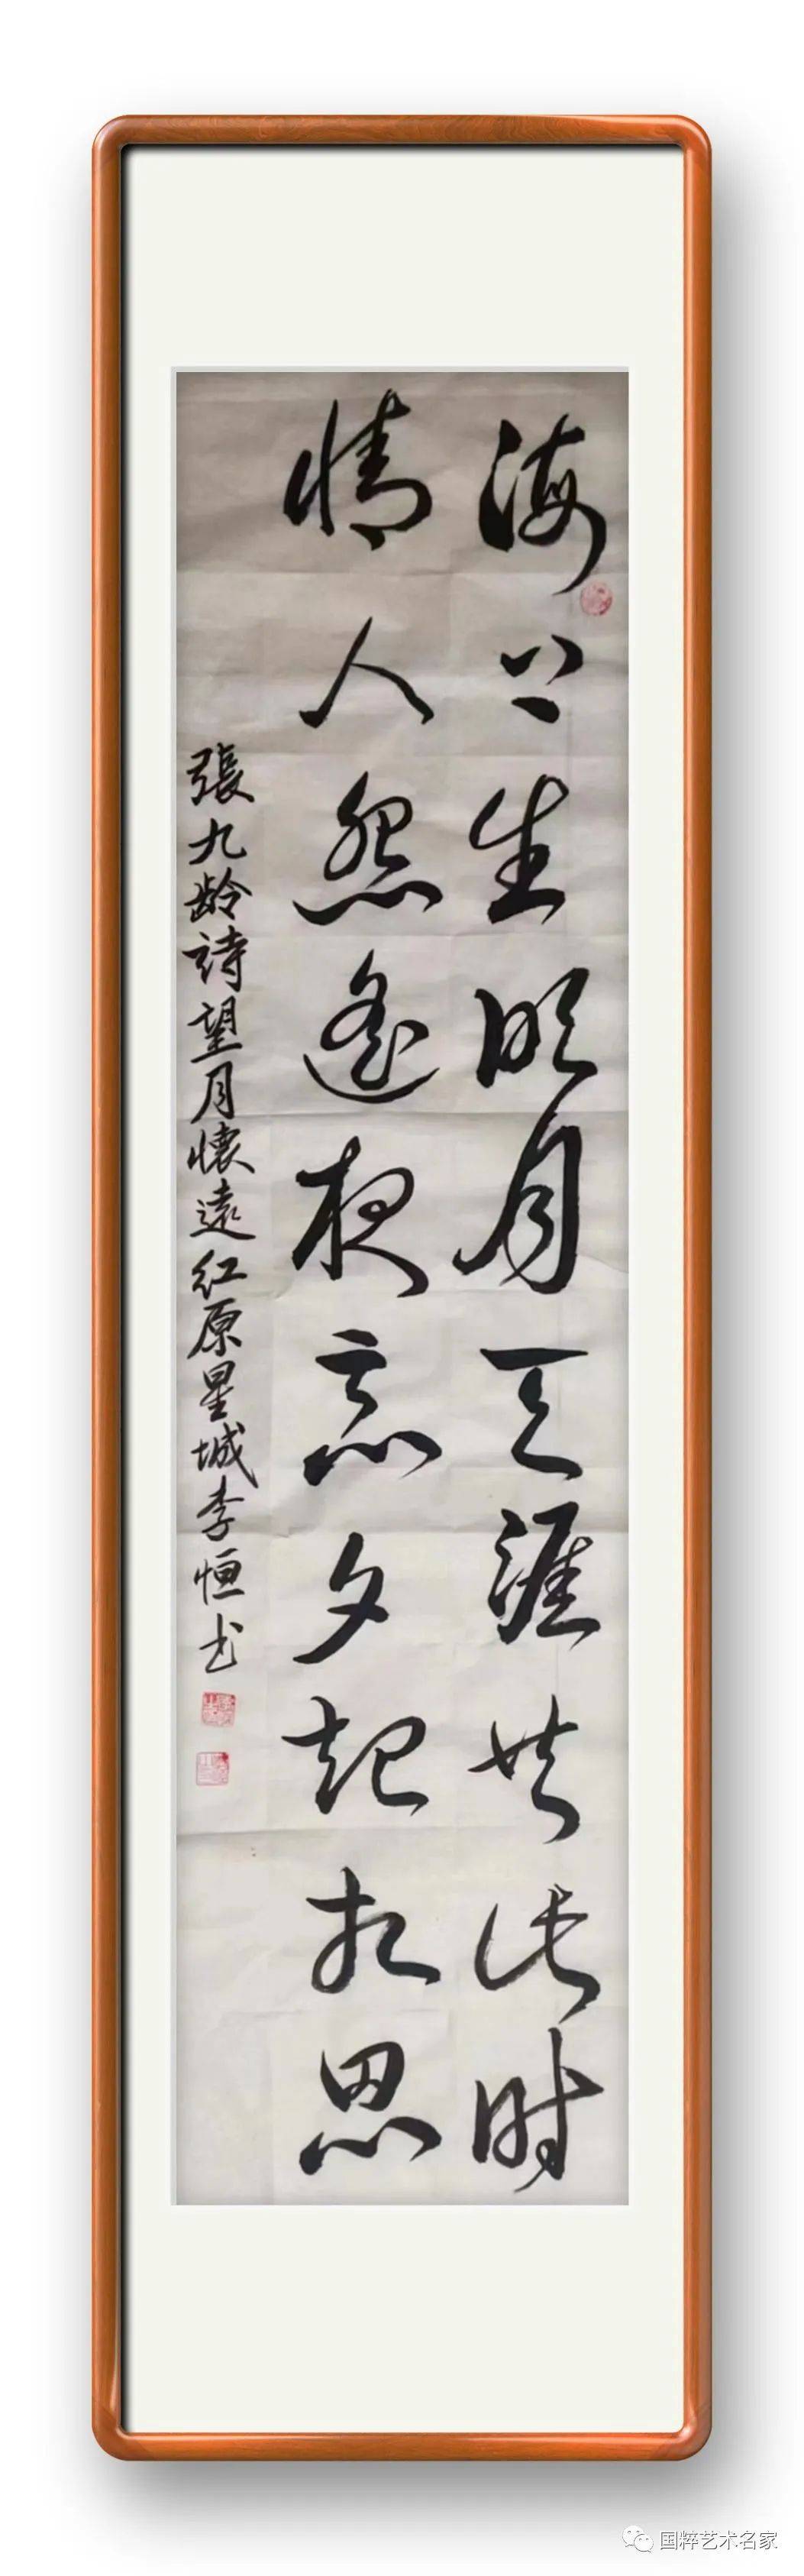 海上生明月天涯共此时
情人怨遥夜竟夕起相思
張九龄詩望月懷遠红原星城李恒书
国粹艺术名家